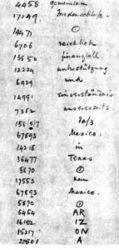 4458 gemeinsam
17149 Friedenschluß.
14471 ①
6706 reichlich
13850 finanziell
12224 unterstützung
6929 und
14991 Einverständnis
7382 unsererseits.
15857 daß
67893 Mexico.
14218 in
36477 Texas
5870 ①
17553 neu
67693 Mexico.
5870 ①
5454 AR
16102 IZ
15217 ON
22801 A